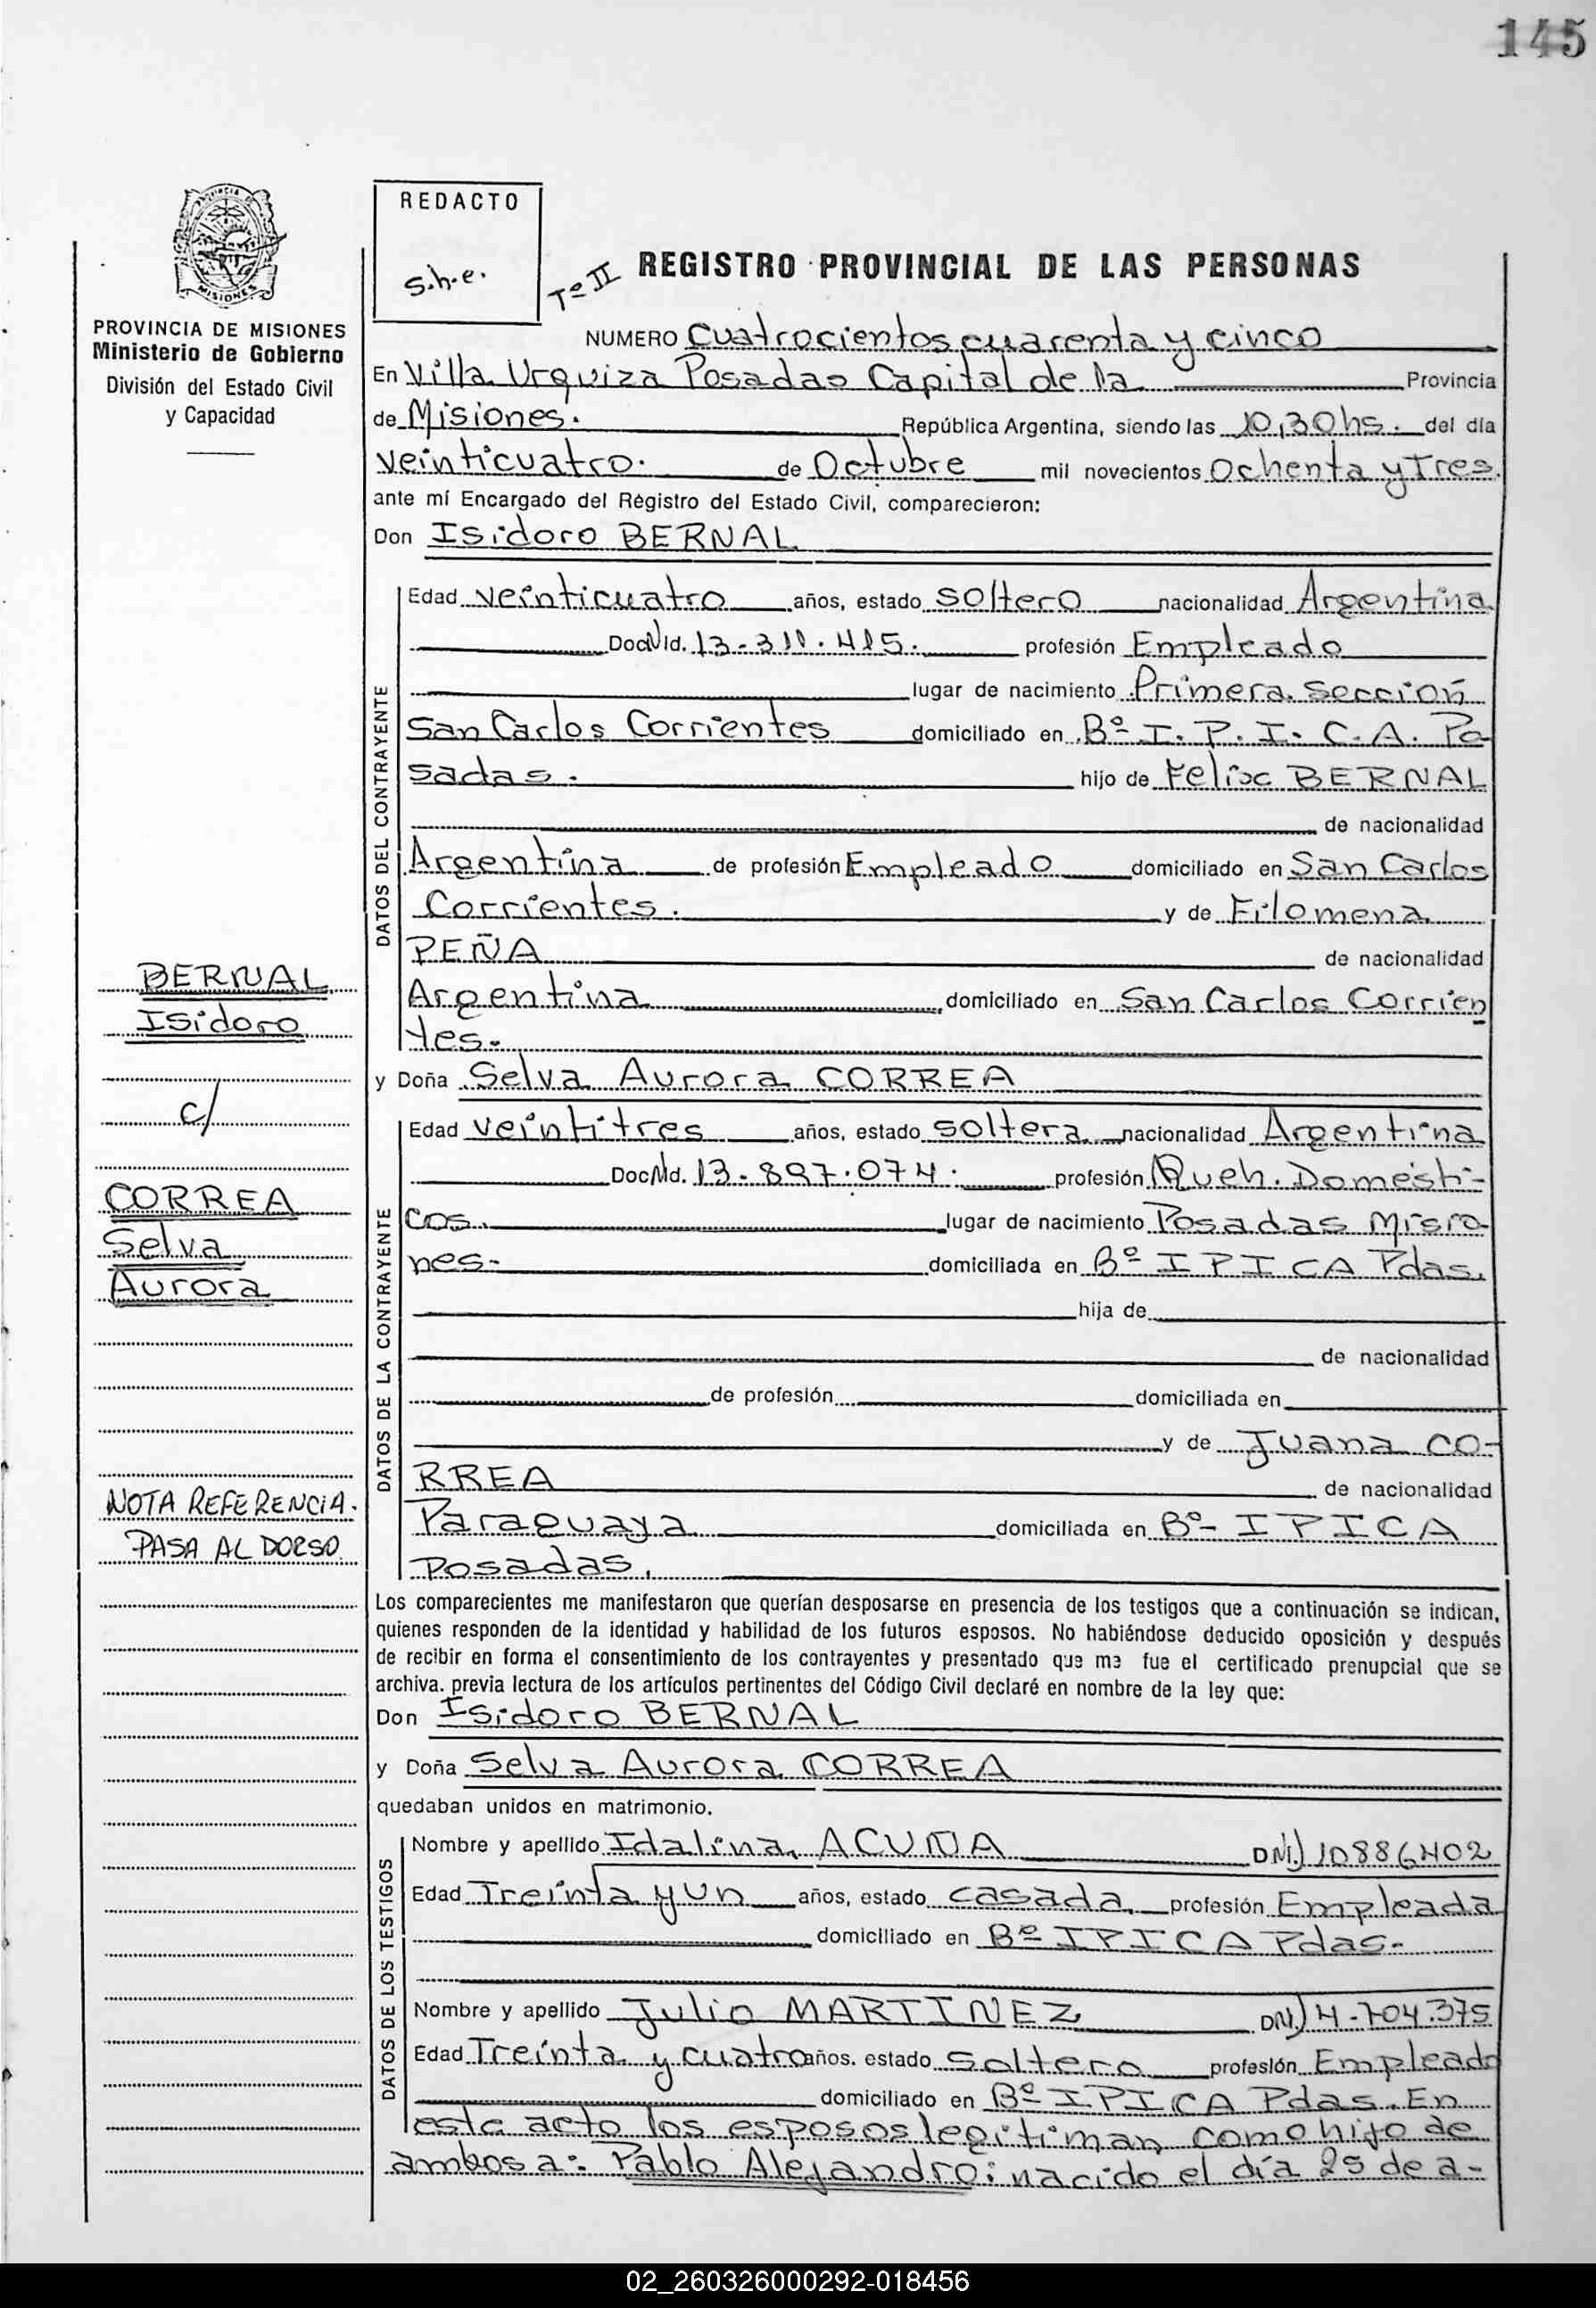 145
PROVINCIA DE MISIONES
Ministerio de Gobierno
División del Estado Civil
y Capacidad
REDACTO
s.h.e.
Tº II
REGISTRO PROVINCIAL DE LAS PERSONAS
NUMERO Cuatrocientos cuarenta y cinco
En Villa Urquiza Posadas Capital de la Provincia
de Misiones. República Argentina, siendo las 10,30 hs. del día
veinticuatro. de Octubre mil novecientos Ochenta y Tres.
ante mí Encargado del Registro del Estado Civil, comparecieron:
Don Isidoro BERNAL
DATOS DEL CONTRAYENTE
Edad veinticuatro años, estado soltero nacionalidad Argentina
Doc.Nid. 13.311.415. profesión Empleado
lugar de nacimiento Primera Sección
San Carlos Corrientes domiciliado en Bº I.P.I.C.A. Po-
sadas. hijo de Felix BERNAL
de nacionalidad
Argentina de profesión Empleado domiciliado en San Carlos
Corrientes. y de Filomena
PEÑA de nacionalidad
Argentina domiciliado en San Carlos Corrien
tes.
y Doña Selva Aurora CORREA
DATOS DE LA CONTRAYENTE
Edad veintitres años, estado soltera nacionalidad Argentina
Doc.Nid. 13.897.074. profesión Queh. Domésti-
cos. lugar de nacimiento Posadas Misio-
nes- domiciliada en Bº IPICA Pdas.
hija de
de nacionalidad
de profesión domiciliada en
y de Juana CO-
RREA de nacionalidad
Paraguaya domiciliada en Bº- IPICA
Posadas.
BERNAL
Isidoro
c/
CORREA
Selva
Aurora
NOTA REFERENCIA.
PASA AL DORSO
Los comparecientes me manifestaron que querían desposarse en presencia de los testigos que a continuación se indican,
quienes responden de la identidad y habilidad de los futuros esposos. No habiéndose deducido oposición y después
de recibir en forma el consentimiento de los contrayentes y presentado que me fue el certificado prenupcial que se
archiva. previa lectura de los artículos pertinentes del Código Civil declaré en nombre de la ley que:
Don Isidoro BERNAL
y Doña Selva Aurora CORREA
quedaban unidos en matrimonio.
DATOS DE LOS TESTIGOS
Nombre y apellido Idalina ACUÑA DNI) 10886402
Edad Treinta y un años, estado casada profesión Empleada
domiciliado en Bº IPICA Pdas-
Nombre y apellido Julio MARTINEZ DNI) 4.704.375
Edad Treinta y cuatro años. estado soltero profesión Empleado
domiciliado en Bº IPICA Pdas. En
este acto los esposos legitiman como hijo de
ambos a: Pablo Alejandro: nacido el día 25 de a-
02_260326000292-018456